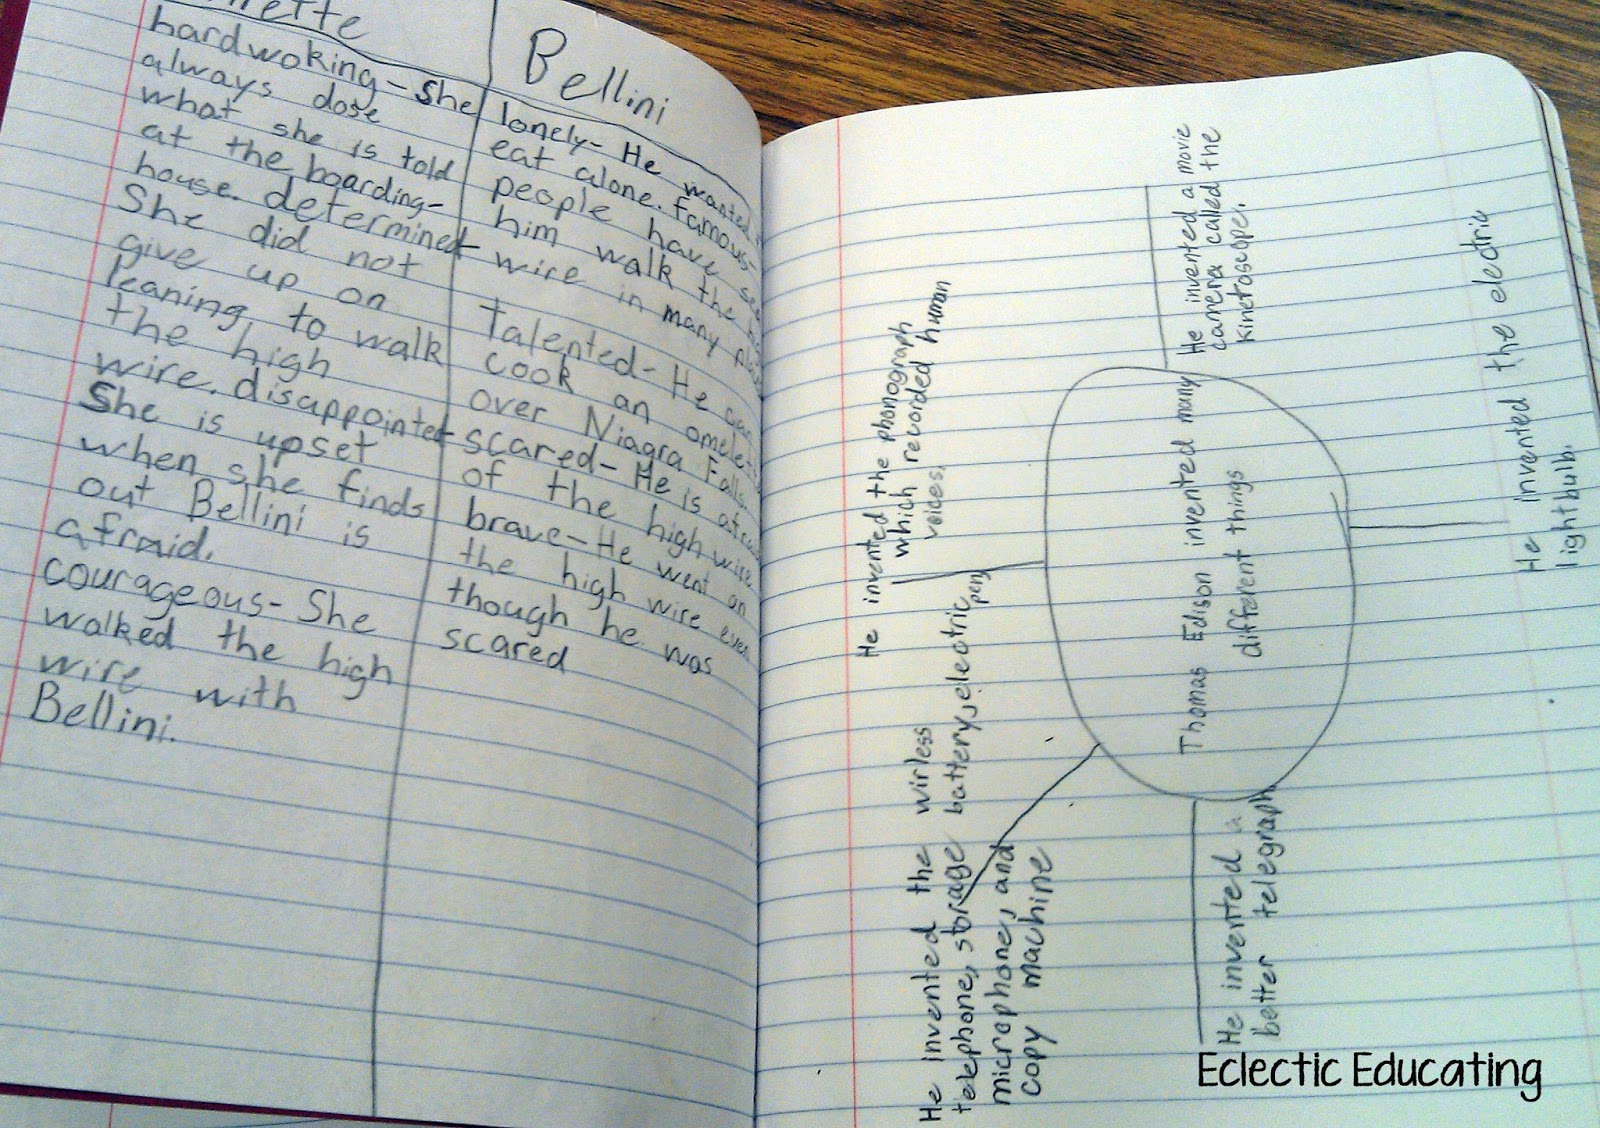 Bellini
hardwoking - She
always dose
what she is told
at the boarding-
house. determined-
She did not
give up on
leaning to walk
the high
wire. disappointed-
She is upset
when she finds
out Bellini is
afraid.
courageous - She
walked the high
wire with
Bellini.
lonely - He wanted
eat alone. famous-
people have
him walk the
wire in many
talented - He can
cook an omelet
over Niagra Falls.
scared - He is
of the high wire
brave - He went on
the high wire even
though he was
scared
He invented the wirless
telephone, storage battery, electric pen,
microphone, and
copy machine
He invented the phonograph
which recorded human
voices.
Thomas Edison invented many
different things
He invented a
better telegraph
He invented a movie
camera called the
kinetoscope.
He invented the electric
lightbulb.
Eclectic Educating